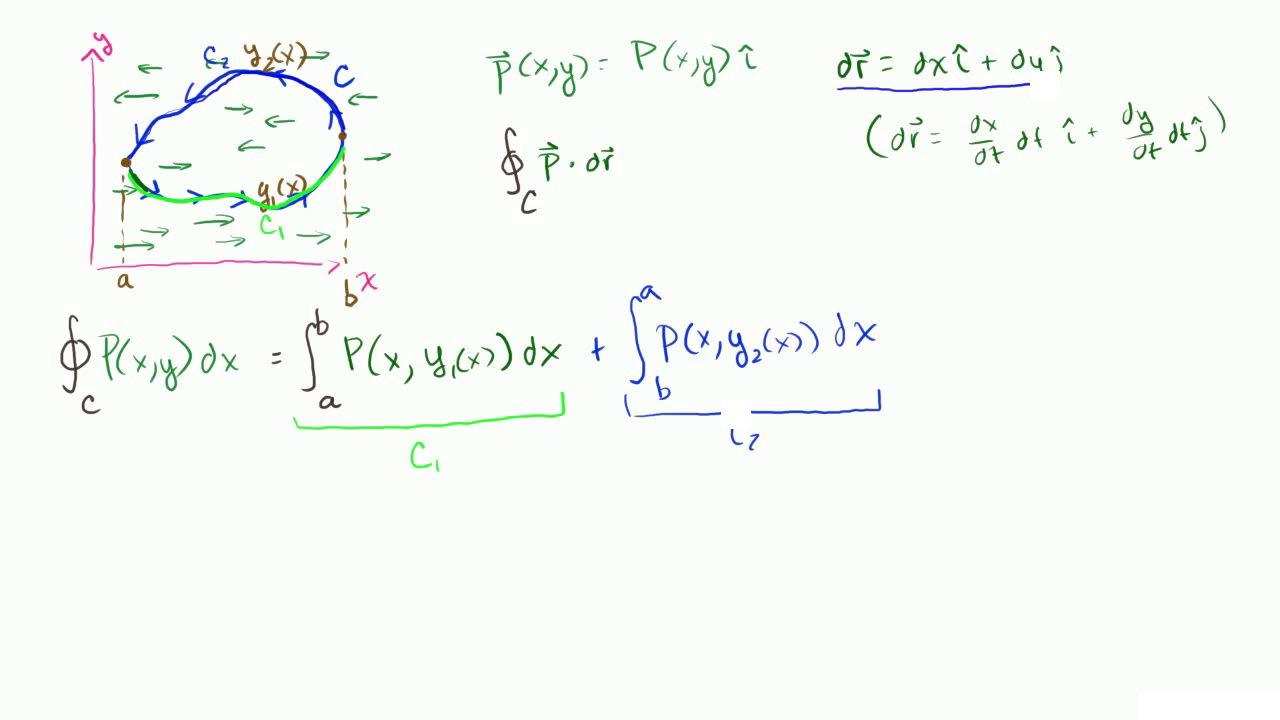 y
C₂ y₂(x)
C
y₁(x)
C₁
a
b x
p⃗(x,y) = P(x,y) î
dr⃗ = dx î + dy ĵ
(dr⃗ = dx/dt dt î + dy/dt dt ĵ)
∮_C p⃗ · dr⃗
∮_C P(x,y) dx = ∫_a^b P(x, y₁(x)) dx + ∫_b^a P(x, y₂(x)) dx
C₁
C₂